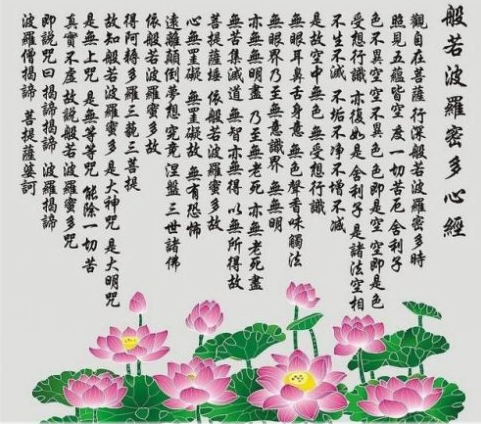 般若波羅密多心經
觀自在菩薩 行深般若波羅密多時
照見五蘊皆空 度一切苦厄 舍利子
色不異空 空不異色 色即是空 空即是色
受想行識 亦復如是 舍利子 是諸法空相
不生不滅 不垢不净 不增不减
是故空中無色 無受想行識
無眼耳鼻舌身意 無色聲香味觸法
無眼界 乃至無意識界 無無明
亦無無明盡 乃至無老死 亦無老死盡
無苦集滅道 無智亦無得 以無所得故
菩提薩埵 依般若波羅密多故
心無罣礙 無罣礙故 無有恐怖
遠離顛倒夢想 究竟涅盤 三世諸佛
依般若波羅密多故
得阿耨多羅三藐三菩提
故知般若波羅密多 是大神咒 是大明咒
是無上咒 是無等等咒 能除一切苦
真實不虛 故說般若波羅密多咒
即說咒曰 揭諦揭諦 波羅揭諦
波羅僧揭諦 菩提薩婆訶